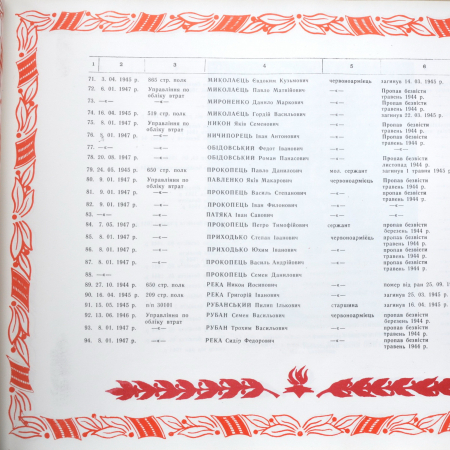 1 2 3 4 5 6
71. 3. 04. 1945 р. 665 стр. полк МИКОЛАЄЦЬ Євдоким Кузьмович червоноармієць загинув 14. 03. 1945 р.
72. 6. 01. 1947 р. Управління по МИКОЛАЄЦЬ Павло Матвійович —«— Пропав безвісти
обліку втрат травень 1944 р.
73. —«— —«— МИРОНЕНКО Данило Маркович —«— Пропав безвісти
травень 1944 р.
74. 16. 04. 1945 р. 519 стр. полк МИКОЛАЄЦЬ Гордій Васильович —«— загинув 22. 03. 1945 р.
75. 8. 01. 1947 р. Управління по НИКОН Наїв Семенович —«— Пропав безвісти
обліку втрат травень 1944 р.
76. 01. 1947 р. —«— НИЧИПОРЕЦЬ Іван Антонович —«— Пропав безвісти
травень 1944 р.
77. —«— —«— ОБІДОВСЬКИЙ Федот Іванович —«— —«—
78. 20. 06. 1947 р. —«— ОБІДОВСЬКИЙ Роман Панасович —«— Пропав безвісти
листопад 1944 р.
79. 24. 05. 1945 р. 650 стр. полк ПРОКОПЕЦЬ Павло Данилович мол. сержант загинув 1 травня 1945
80. 9. 01. 1947 р. Управління по ПАВЛЕНКО Наїв Макарович червоноармієць Пропав безвісти
обліку втрат травень 1944 р.
81. 9. 01. 1947 р. —«— ПРОКОПЕЦЬ Василь Степанович —«— пропав безвісти
травень 1944 р.
82. 9. 01. 1947 р. —«— ПРОКОПЕЦЬ Іван Филонович —«— —«—
83. —«— —«— ПАТЯКА Іван Савович —«— —«—
84. 7. 05. 1947 р. —«— ПРОКОПЕЦЬ Петро Тимофійович сержант пропав безвісти
березень 1944 р.
85. 8. 01. 1947 р. —«— ПРИХОДЬКО Степан Іванович червоноармієць пропав безвісти
травень 1944 р.
86. 8. 01. 1947 р. —«— ПРИХОДЬКО Юхим Іванович —«— пропав безвісти
травень 1944 р.
87. 8. 01. 1947 р. —«— ПРОКОПЕЦЬ Василь Андрійович —«— пропав безвісти
травень 1944 р.
88. —«— —«— ПРОКОПЕЦЬ Семен Данилович —«—
89. 27. 10. 1944 р. 650 стр. полк РЕКА Никон Йосипович —«— помер від ран 25. 09.
90. 16. 04. 1945 р. 209 стр. полк РЕКА Григорій Іванович —«— загинув 25. 03. 1945 р.
91. 15. 05. 1945 р. п/п 39101 РУБАНСЬКИЙ Павло Ількович старшина загинув 16. 04. 1945 р.
92. 13. 06. 1946 р. Управління по РУБАН Семен Васильович червоноармієць пропав безвісти
обліку втрат березень 1944 р.
93. 8. 01. 1947 р. —«— РУБАН Трохим Васильович —«— пропав безвісти
травень 1944 р.
94. 8. 01. 1947 р. —«— РЕКА Сидір Федорович —«— пропав безвісти
травень 1944 р.